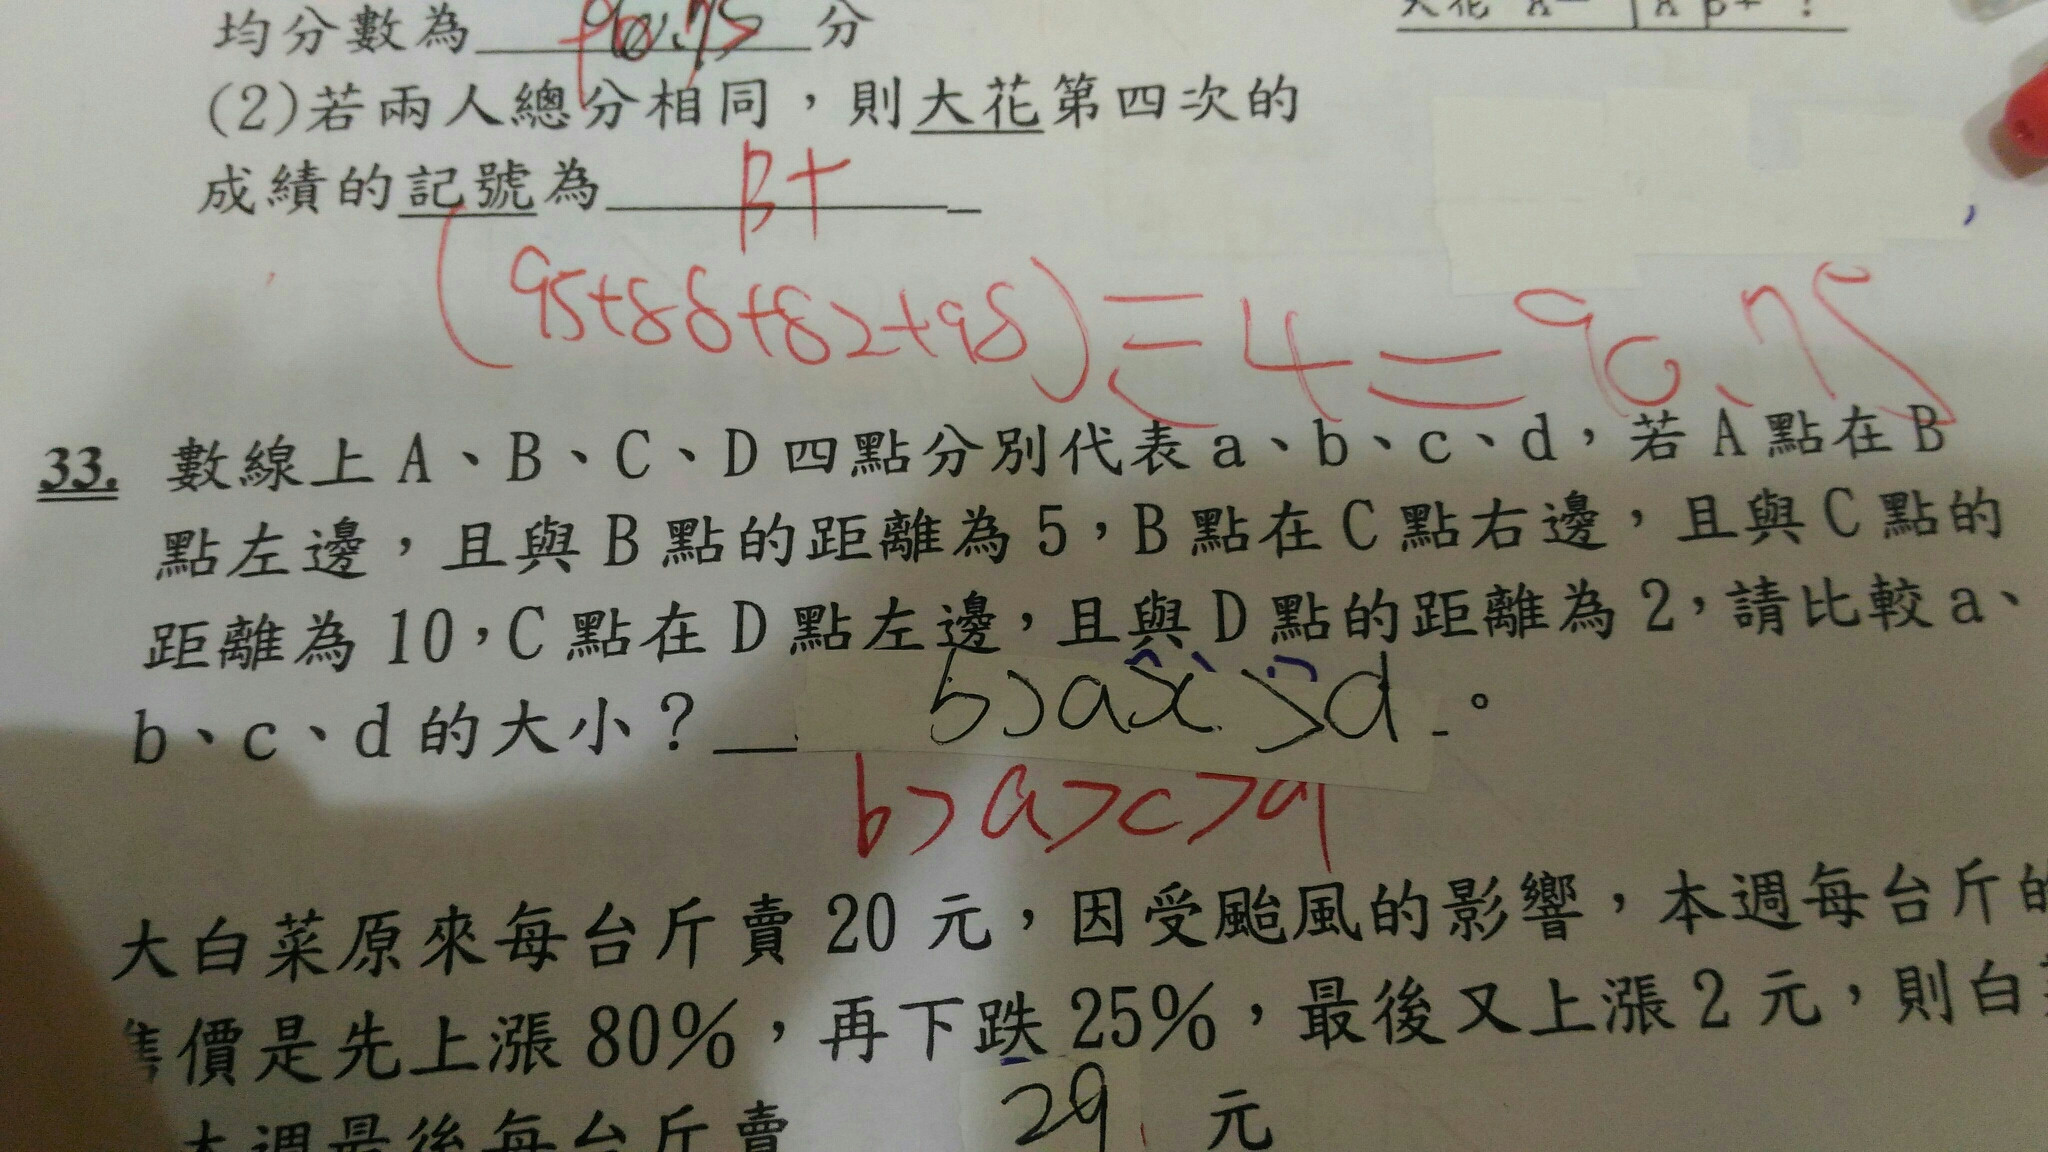 均分數為 90.75 分
(2)若兩人總分相同，則大花第四次的
成績的記號為 B+
(95+88+82+98)÷4=90.75
33. 數線上 A、B、C、D 四點分別代表 a、b、c、d，若 A 點在 B
點左邊，且與 B 點的距離為 5，B 點在 C 點右邊，且與 C 點的
距離為 10，C 點在 D 點左邊，且與 D 點的距離為 2，請比較 a、
b、c、d 的大小？ b>a >d 。
b>a>c>d
大白菜原來每台斤賣 20 元，因受颱風的影響，本週每台斤的
售價是先上漲 80%，再下跌 25%，最後又上漲 2 元，則白菜
本週最後每台斤賣 29 元